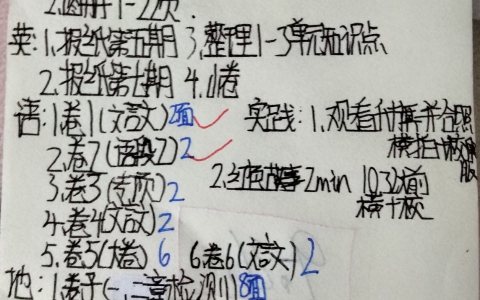 2.图册1-22页
英:1.报纸第五期 3.整理1-3单元知识点
2.报纸第七期 4.1卷
语:1.卷1(文言文)2面 实践:1.观看升旗并合照
2.卷2(语段)2 横拍
3.卷3(专项)2 2.红色故事2min 10.3以前
4.卷4(文言文)2 横
5.卷5(大卷)6 6卷6(文言文)2
地:1.卷子(一、二章检测)8面